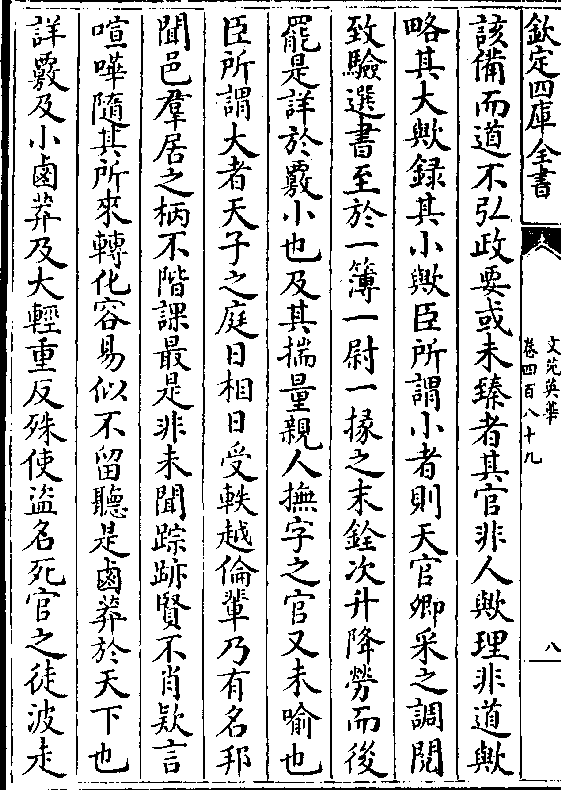 欽定四庫全書
文苑英華
卷四百八十九
八
該備而道不弘政要或未臻者其官非人歟理非道歟
略其大歟録其小歟臣所謂小者則天官卿采之調閲
致驗選書至於一簿一尉一掾之末銓次升降勞而後
罷是詳於覈小也及其揣量親人撫字之官又未喻也
臣所謂大者天子之庭日相日受軼越倫輩乃有名邦
聞邑羣居之柄不階課最是非未聞踪跡賢不肖欵言
喧嘩隨其所來轉化容易似不留聽是鹵莽於天下也
詳覈及小鹵莽及大輕重反殊使盜名死官之徒波走